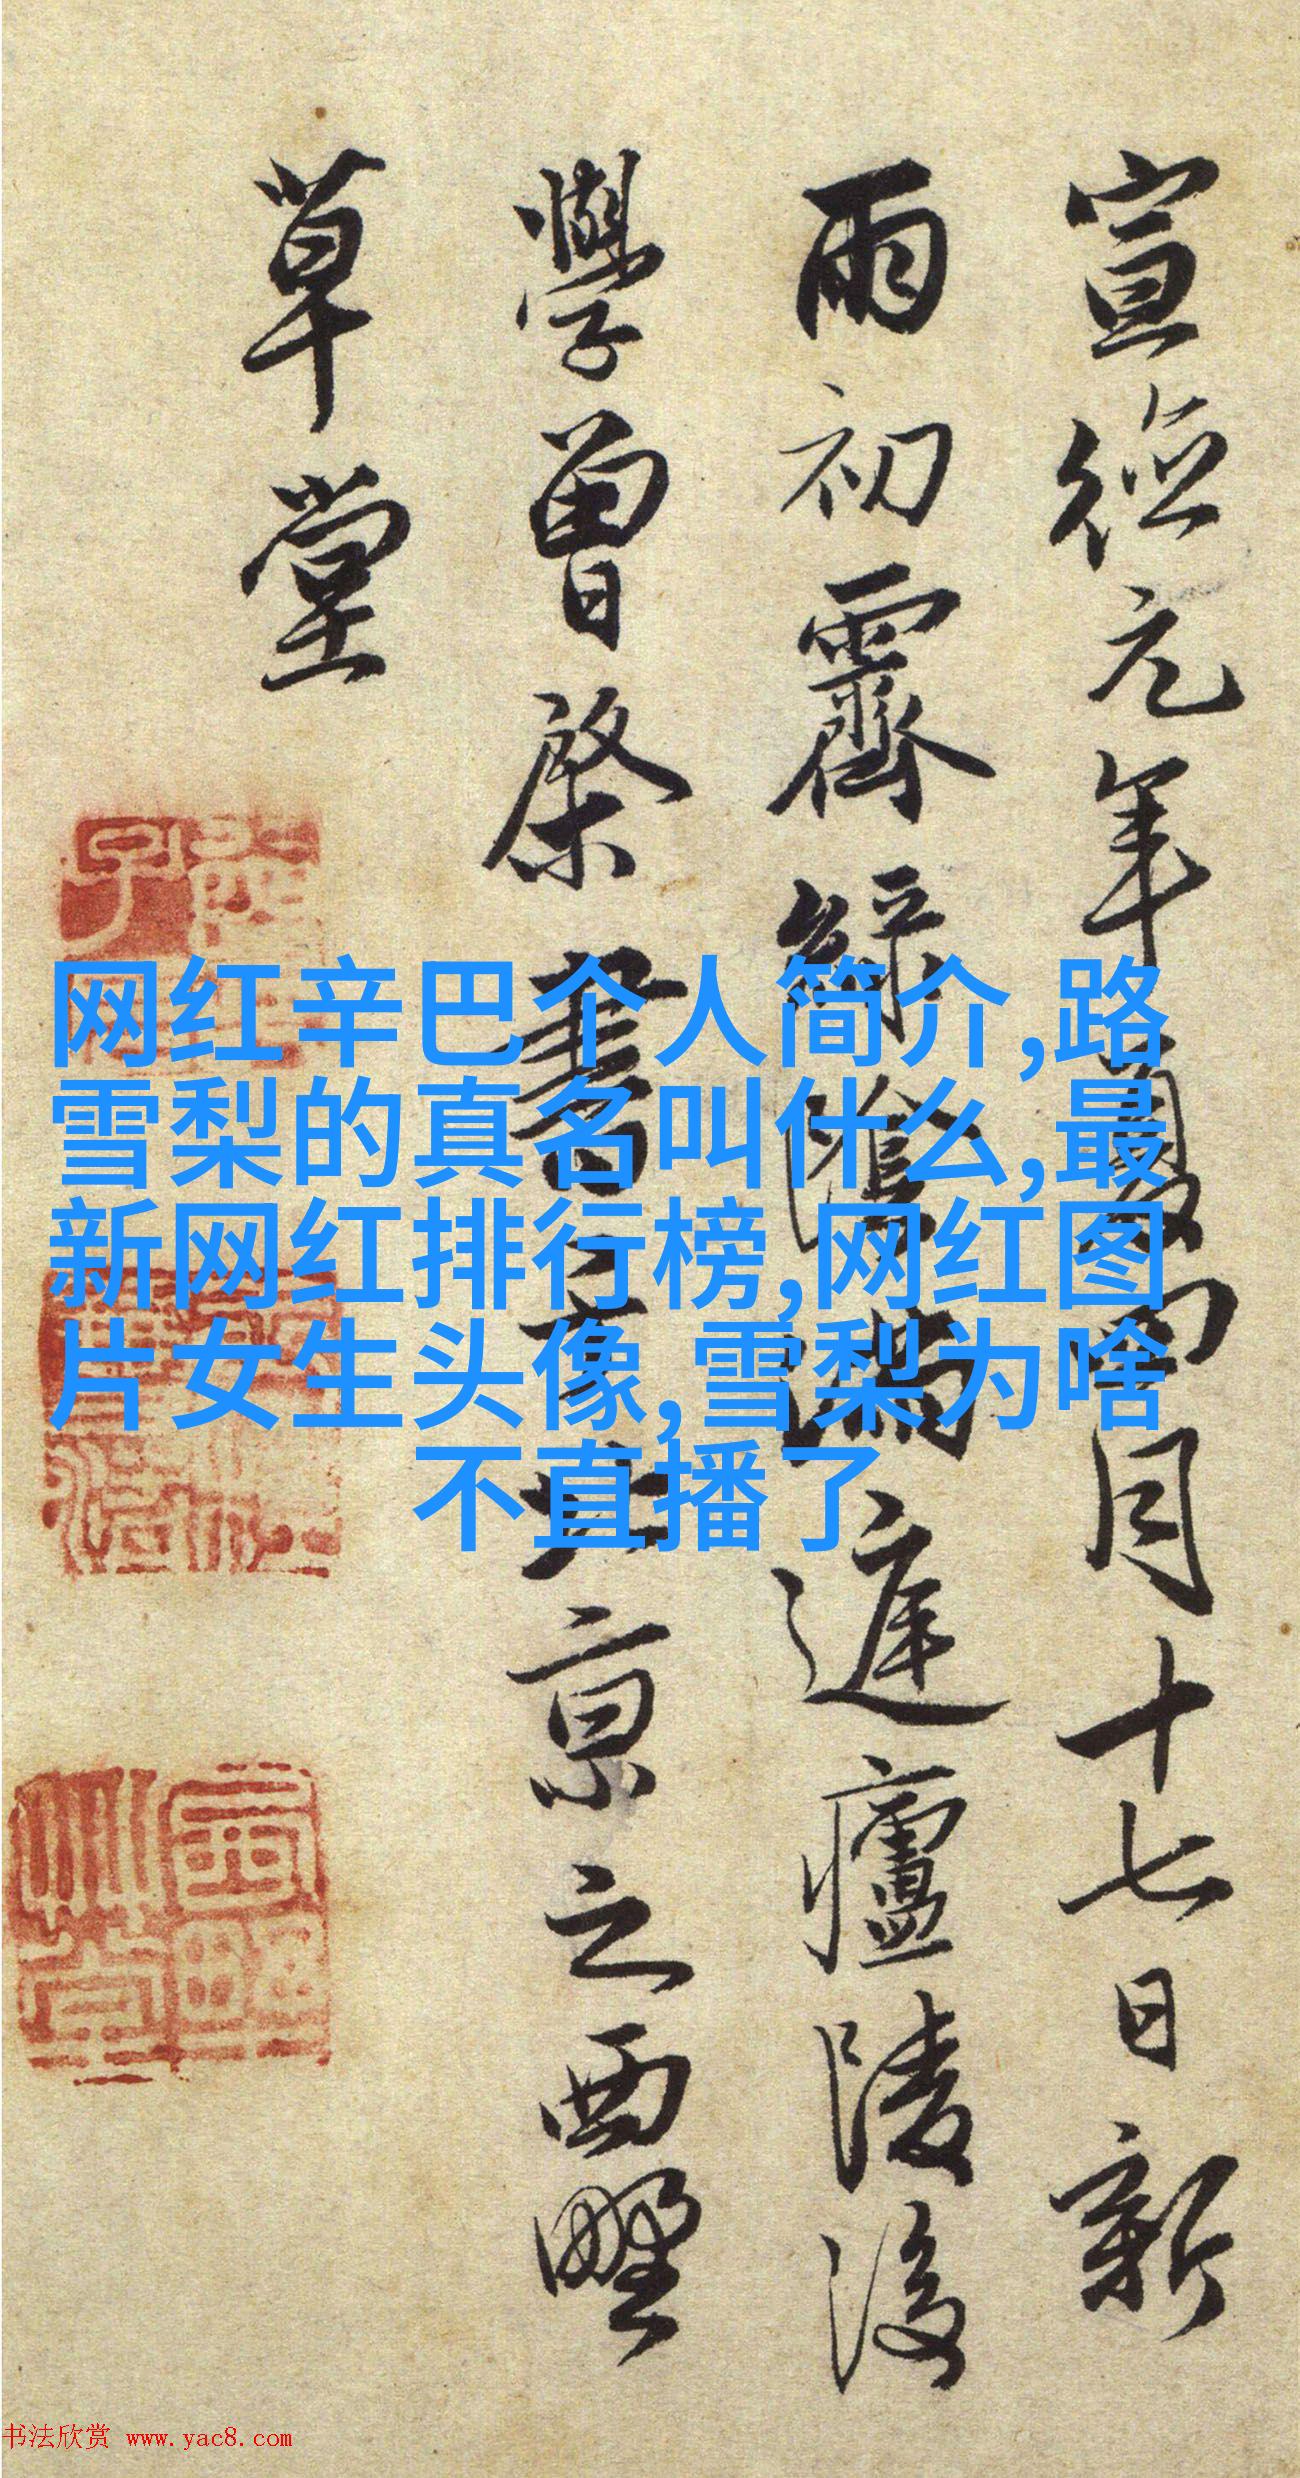 宣德元年夏四月十七日新
雨初霽綠陰滿庭廬陵後
學曾棨書于北京之西墅
草堂
网红辛巴个人简介,路
雪梨的真名叫什么,最
新网红排行榜,网红图
片女生头像,雪梨为啥
不直播了
书法欣赏 www.yac8.com